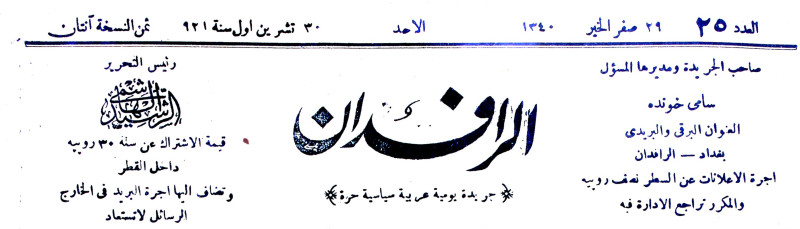 العدد ٢٥ ٢٩ صفر الخير ١٣٤٠ الاحد ٣٠ تشرين اول سنة ٩٢١ ثمن النسخة آنتان
صاحب الجريدة ومديرها المسؤل
سامى خونده
العنوان البرقى والبريدى
بغداد — الرافدان
اجرة الاعلانات عن السطر نصف روبيه
والمكرر تراجع الادارة فبه
الرافدان
جريدة يومية عربية سياسية حرة
رئيس التحرير
الرشيد الهاشمي
قيمة الاشتراك عن سنة ٣٠ روبيه
داخل القطر
وتضاف اليها اجرة البريد فى الخارج
الرسائل لاتستعاد